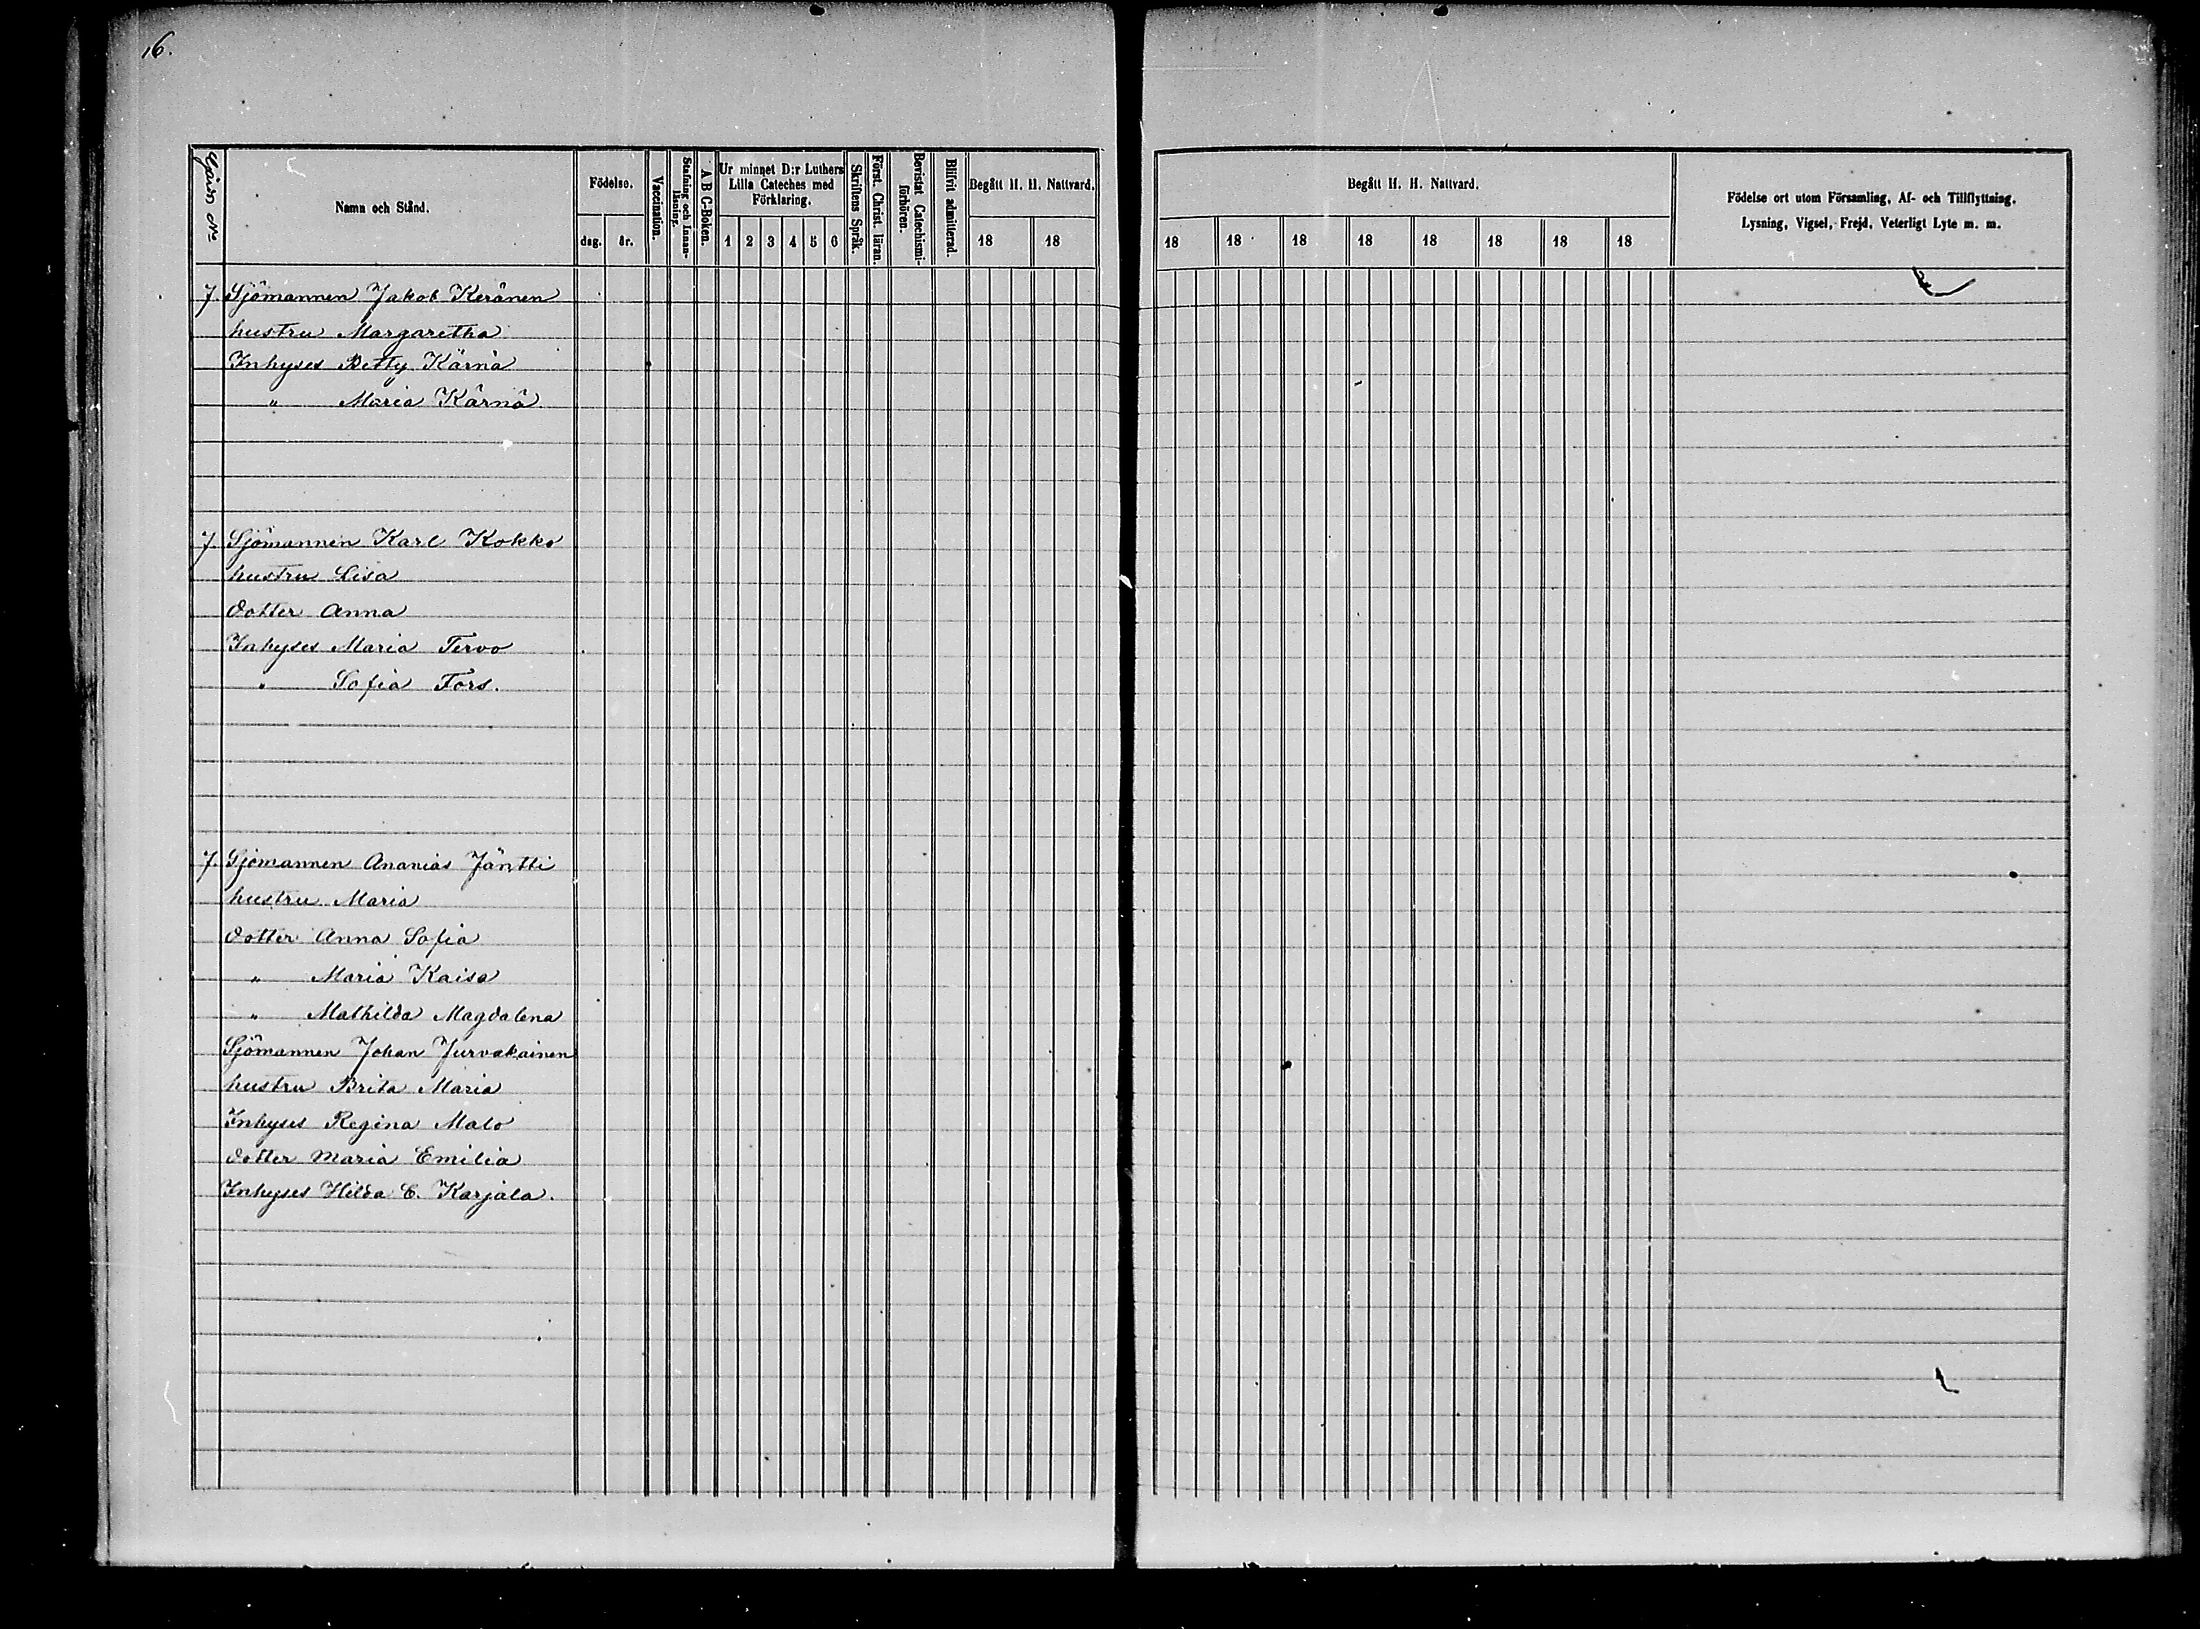 16.
Gård No
Namn och Stånd.
Födelse.
dag.
år.
Vaccination.
Stafning och Innan-läsning.
A B C-Boken.
Ur minnet D:r Luthers
Lilla Cateches med
Förklaring.
1 2 3 4 5 6
Skriftens Språk.
Först. Christ. läran.
Bevistat Catechismi-förhören.
Blifvit admitterad.
Begått H. H. Nattvard.
18 18
Begått H. H. Nattvard.
18 18 18 18 18 18 18 18
Födelse ort utom Församling, Af- och Tillflyttning,
Lysning, Vigsel, Frejd, Veterligt Lyte m. m.
7. Sjömannen Jakob Keränen
hustru Margaretha
Inhyses Betty Kärnä
" Maria Kärnä
7. Sjömannen Karl Kokko
hustru Lisa
dotter Anna
Inhyses Maria Tervo
" Sofia Fors.
7. Sjömannen Ananias Jäntti
hustru Maria
dotter Anna Sofia
" Maria Kaisa
" Mathilda Magdalena
Sjömannen Johan Jurvakainen
hustru Brita Maria
Inhyses Regina Malo
dotter Maria Emilia
Inhyses Hilda C. Karjala.